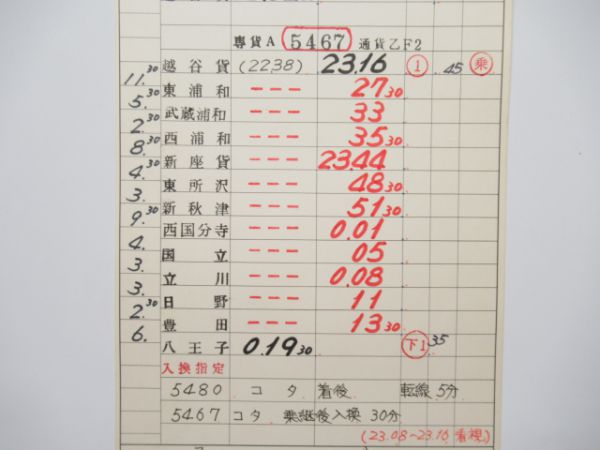 専貨A 5467 通貨乙F2
越谷貨 (2238) 23.16 1 45 乗
11.30
東浦和 --- 27 30
5.30
武蔵浦和 --- 33
2.30
西浦和 --- 35 30
8.30
新座貨 --- 23.44
4.30
東所沢 --- 48 30
3.
新秋津 --- 51 30
9.30
西国分寺 --- 0.01
4.
国立 --- 05
3.
立川 --- 0.08
3.
日野 --- 11
2.30
豊田 --- 13 30
6.
八王子 0.19 30 下1 35
入換指定
5480 コタ 着後 転線 5分
5467 コタ 乗継後入換 30分
(23.08～23.16 看視)